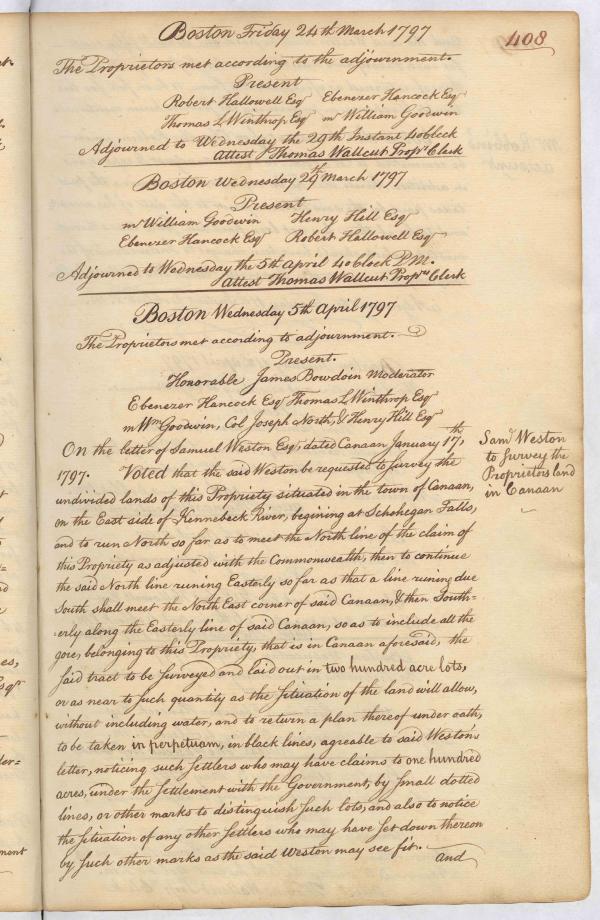 408
Boston Friday 24th March 1797
The Proprietors met according to the adjournment.
Present
Robert Hallowell Esqr Ebenezer Hancock Esqr
Thomas L Winthrop Esqr mr William Goodwin
Adjourned to Wednesday the 29th Instant 4 oClock
Attest Thomas Wallcut Proprs Clerk
Boston Wednesday 29th March 1797
Present
mr William Goodwin Henry Hill Esqr
Ebenezer Hancock Esqr Robert Hallowell Esqr
Adjourned to Wednesday the 5th April 4 oClock P.M.
Attest Thomas Wallcut Proprs Clerk
Boston Wednesday 5th April 1797
The Proprietors met according to adjournment.
Present.
Honorable James Bowdoin Moderator
Ebenezer Hancock Esqr Thomas L Winthrop Esqr
mr Wm Goodwin, Col Joseph North, & Henry Hill Esqr
On the letter of Samuel Weston Esqr, dated Canaan January 17th,
1797. Voted that the said Weston be requested to survey the
undivided lands of this Propriety situated in the town of Canaan,
on the East side of Kennebeck River, begining at Schohegan Falls,
and to run North so far as to meet the North line of the claim of
this Propriety as adjusted with the Commonwealth, then to continue
the said North line runing Easterly so far as that a line runing due
South shall meet the North East corner of said Canaan, & then South=
erly along the Easterly line of said Canaan, so as to include all the
gore, belonging to this Propriety, that is in Canaan aforesaid, the
said tract to be surveyed and laid out in two hundred acre lots,
or as near to such quantity as the situation of the land will allow,
without including water, and to return a plan thereof under oath,
to be taken in perpetuam, in black lines, agreable to said Weston's
letter, noticing such settlers who may have claims to one hundred
acres, under the settlement with the Government, by small dotted
lines, or other marks to distinguish such lots, and also to notice
the situation of any other settlers who may have set down thereon
by such other marks as the said Weston may see fit.
and
Saml Weston
to survey the
Proprietors land
in Canaan